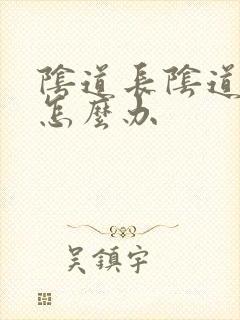 陰道長陰道
怎麼办
吳鎮宇